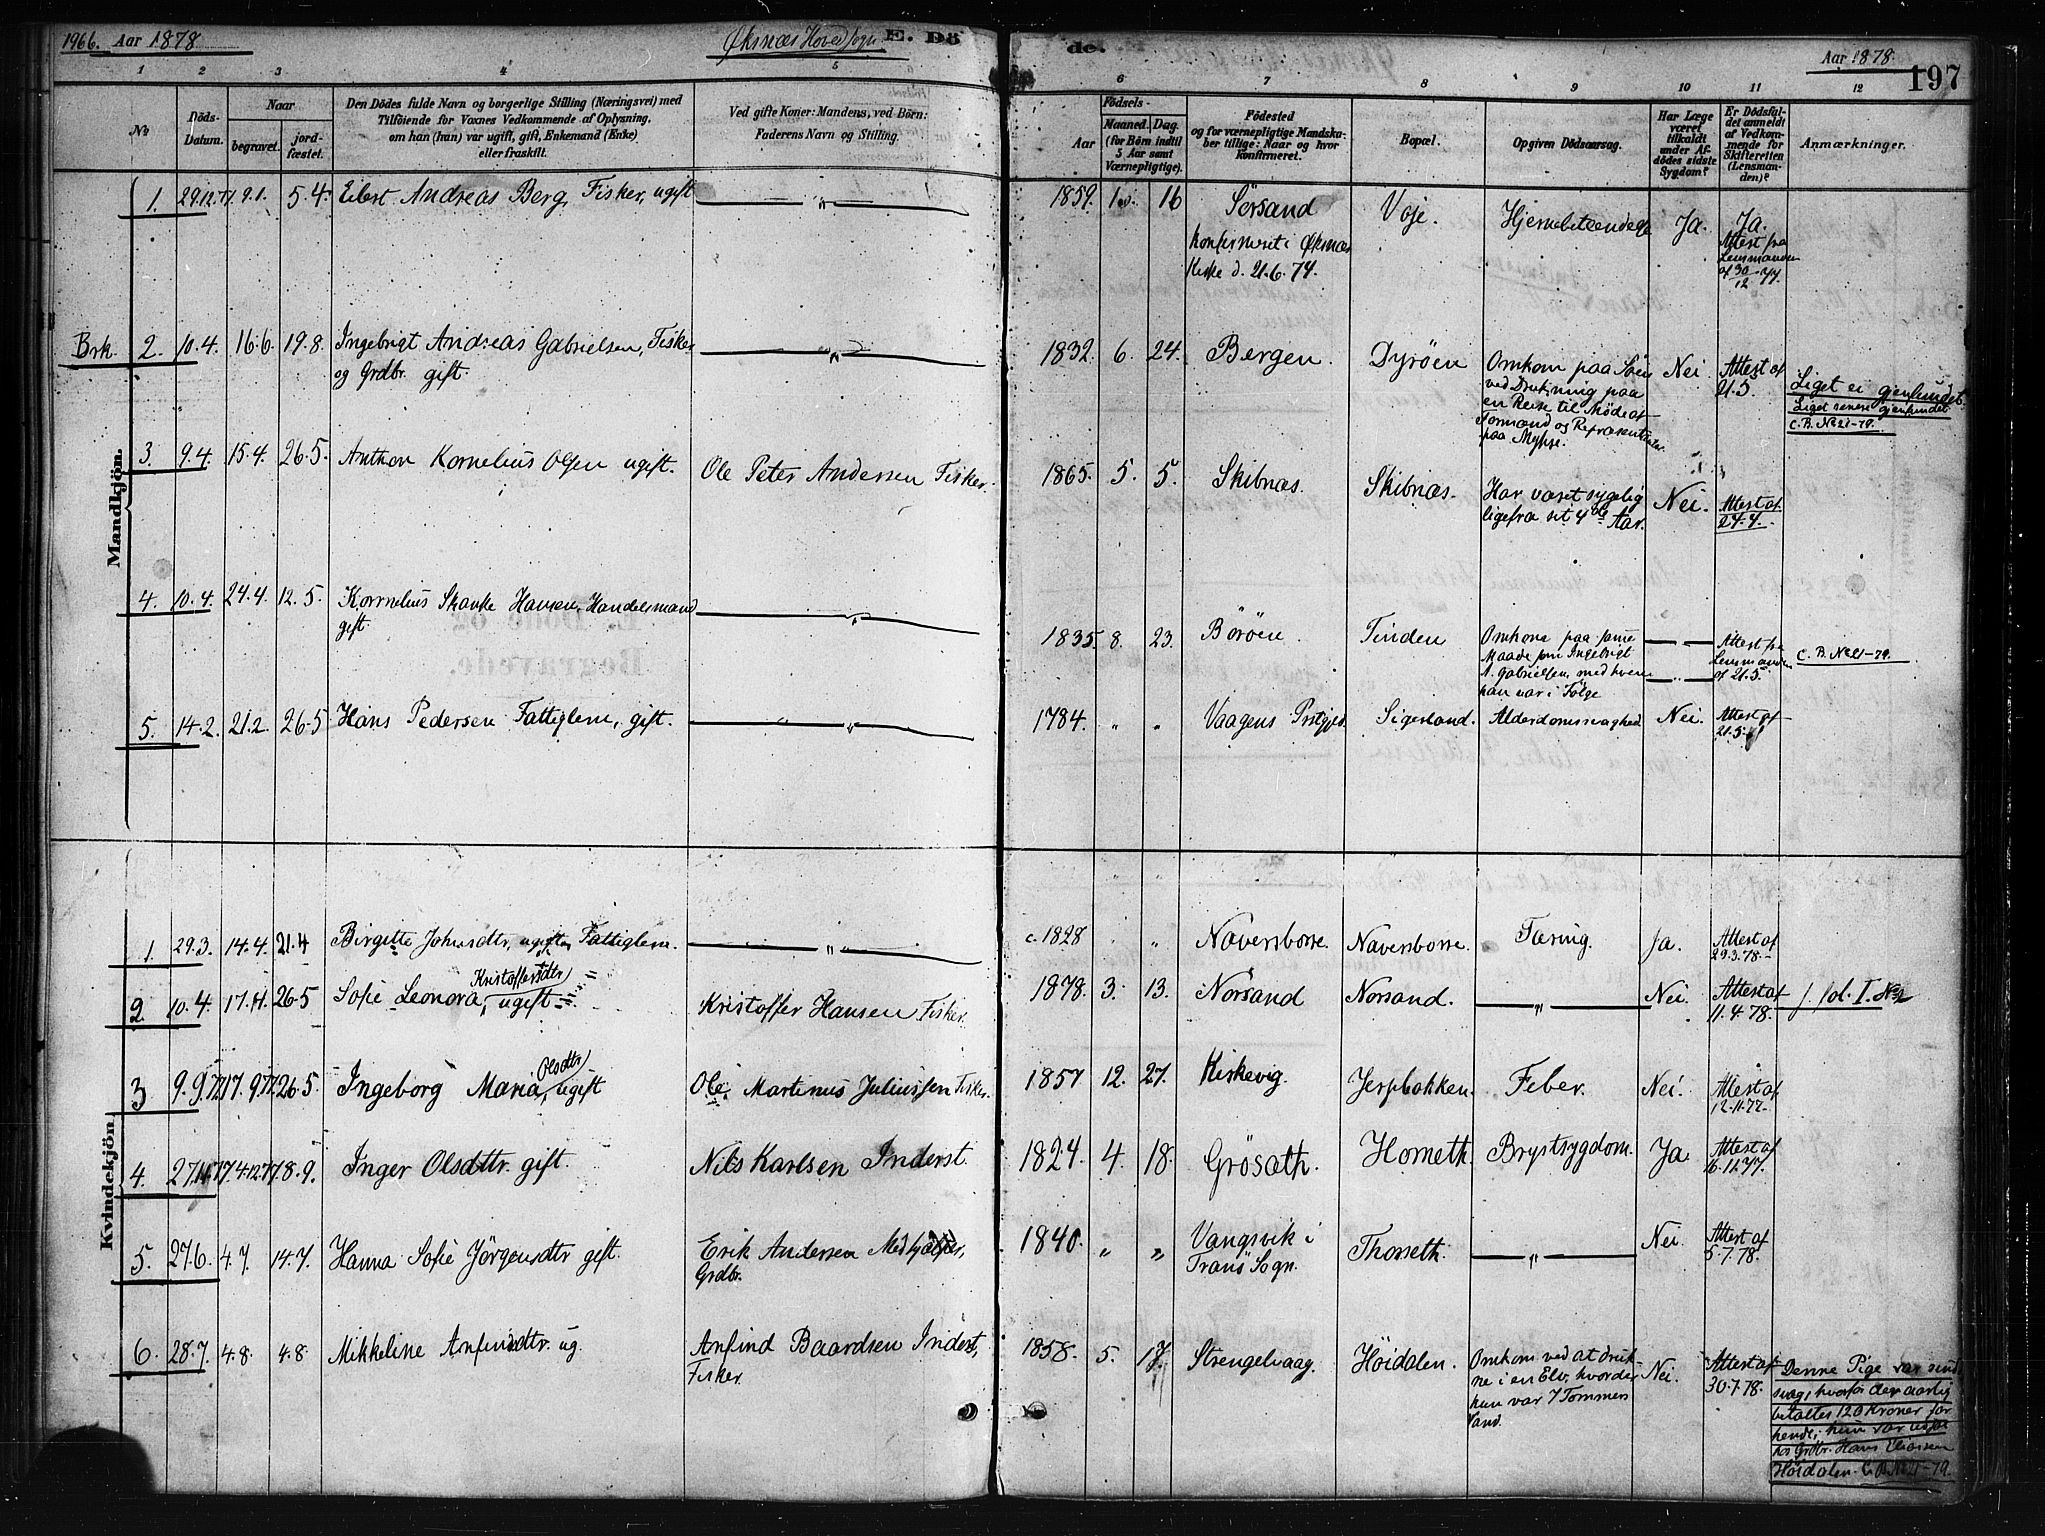 1966. Aar 1878
Øksnæs Hovedsogn E. Dö
de.
Aar 1878.
197
1 2 3 4 5
6 7 8 9 10 11 12
No
Döds-
Datum.
Naar
begravet.
jord-
fæstet.
Den Dödes fulde Navn og borgerlige Stilling (Næringsvei) med
Tilföiende for Voxnes Vedkommende af Oplysning,
om han (hun) var ugift, gift, Enkemand (Enke)
eller fraskilt.
Ved gifte Koner: Mandens, ved Börn:
Faderens Navn og Stilling.
Födsels-
Aar
Maaned. Dag.
(for Börn indtil
5 Aar samt
Værnepligtige).
Födested
og for værnepligtige Mandska-
ber tillige: Naar og hvor
konfirmeret.
Bopæl.
Opgiven Dödsaarsag.
Har Læge
været
tilkaldt
under Af-
dödes sidste
Sygdom?
Er Dödsfal-
det anmeldt
af Vedkom-
mende for
Skifteretten
(Lensman-
den)?
Anmærkninger.
Mandkjön.
1. 29.12.77. 9.1. 5.4. Eilert Andreas Berg, Fisker, ugift — " — 1859. 1. 16 Sörsand Voje. Hjernebetændelse Ja. Ja.
konfirmeret i Øksnæs
Kirke d. 21.6.74.
Attest fra
Lensmanden
af 30/12 77
Brk. 2. 10.4. 16.6. 19.8. Ingebrigt Andreas Gabrielsen, Fisker — " — 1832. 6. 24. Bergen. Dyröen Omkom paa Söen Nei. Attest af
og Grdbr. gift.
ved Drukning paa
en Reise til Möde af
Formænd og Repræsentanter
paa Myhre.
21.5
Liget ei gjenfundet.
Liget senere gjenfundet
C.B. No 21-79.
3. 9.4. 15.4. 26.5. Anthon Kornelius Olsen ugift. Ole Peter Andersen Fisker. 1865. 5. 5. Skibnæs. Skibnæs. Har været sygelig Nei. Attest af
ligefra sit 4de Aar.
24.4.
4. 10.4. 24.4. 12.5. Kornelius Skanke Hansen, Handelsmand — " — 1835. 8. 23. Böröen. Tinden Omkom paa samme — " — Attest fra
gift.
Maade som Ingebrigt
A. Gabrielsen, med hvem
han var i Fölge
Lensmanden
af 21.5.
C.B. No 21-79.
5. 14.2. 21.2. 26.5 Hans Pedersen Fattiglem, gift. — " — 1784. " " Vaagens Prstgjd. Sigerland. Alderdomssvaghed. Nei. Attest af
21.5.
Kvindekjön.
1. 29.3. 14.4. 21.4 Birgitte Johnsdtr, ugift, Fattiglem. — " — c. 1828 " " Naversborre. Naversborre. Tæring. Ja. Attest af
29.3.78.
2. 10.4. 17.4. 26.5 Sofie Leonora Kristoffersdtr, ugift Kristoffer Hansen Fisker. 1878. 3. 13. Norsand Norsand. — " — Nei. Attest af
11.4.78.
f. fol. I. No 2
3 9.9.77. 17.9.77. 26.5. Ingeborg Maria Olsdtr, ugift Ole Martinus Juliussen Fisker. 1857 12. 27. Kirkevig. Jerpbakken. Feber. Nei. Attest af
12.11.77.
4. 27.11.77. 4.12.77. 8.9. Inger Olsdttr. gift. Nils Karlsen Inderst. 1824. 4. 18. Grösæth. Hometh. Brystsygdom. Ja Attest af
5. 27.6. 4.7. 14.7. Hanna Sofie Jörgensdtr gift. Erik Andersen Medhjælper, 1840. " " Vangsvik i Thorseth. — " — Nei. Attest af
Grdbr.
Tranö Sogn.
5.7.78.
6. 28.7. 4.8. 4.8. Mikkeline Anfindsdttr. ug. Anfind Baardsen Inderst, 1858. 5. 17. Strengelvaag. Höidalen. Omkom ved at druk- Nei. Attest af
Fisker.
ne i en Elv, hvorder
kun var 7 Tommer
Vand.
30.7.78.
Denne Pige var sind-
svag, hvorfor der aarlig
betaltes 120 Kroner for
hende; hun var udsat
hos Grdbr. Hans Eliassen
Höidalen. C.B. No 21-79.